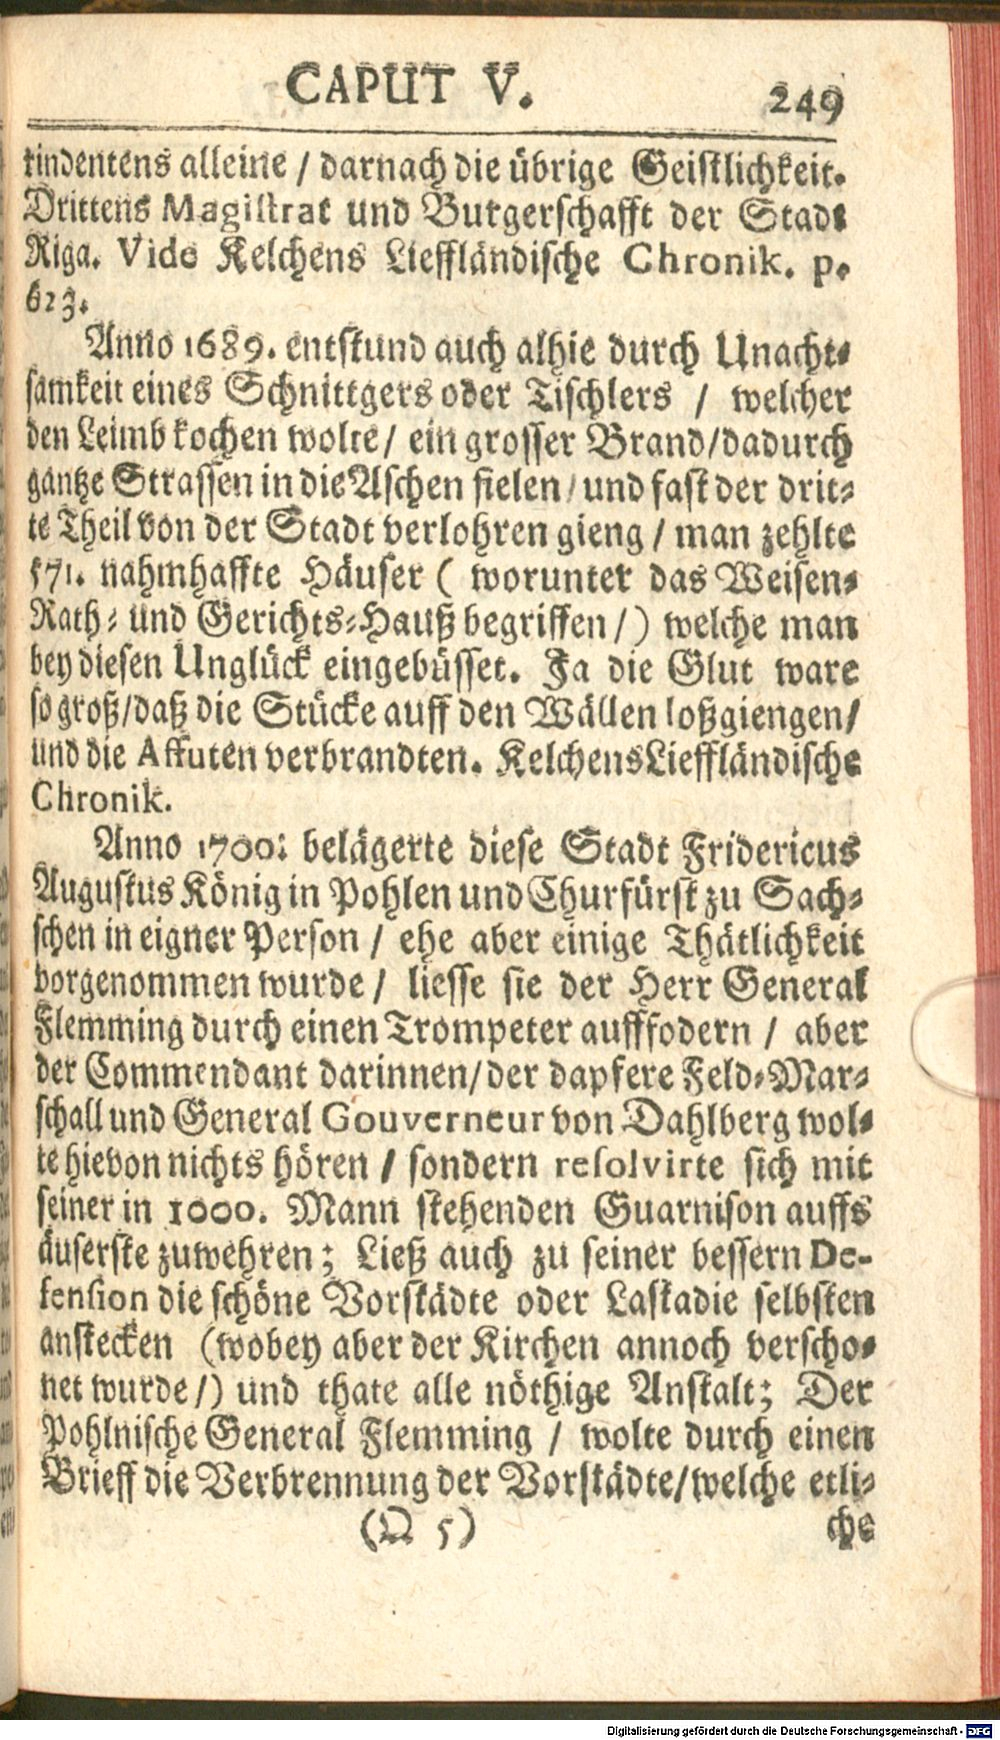 CAPUT V. 249
tindentens alleine / darnach die übrige Geistlichkeit.
Drittens Magistrat und Burgerschafft der Stadt
Riga. Vide Kelchens Lieffländische Chronik. p.
623.
Anno 1689. entstund auch alhie durch Unacht-
samkeit eines Schnittgers oder Tischlers / welcher
den Leimb kochen wolte / ein grosser Brand / dadurch
gantze Strassen in die Aschen fielen / und fast der drit-
te Theil von der Stadt verlohren gieng / man zehlte
571. nahmhaffte Häuser ( worunter das Weisen-
Rath- und Gerichts-Hauß begriffen /) welche man
bey diesen Unglück eingebüsset. Ja die Glut ware
so groß / daß die Stücke auff den Wällen loßgiengen /
und die Affuten verbrandten. Kelchens Lieffländische
Chronik.
Anno 1700: belägerte diese Stadt Fridericus
Augustus König in Pohlen und Churfürst zu Sach-
schen in eigner Person / ehe aber einige Thätlichkeit
vorgenommen wurde / liesse sie der Herr General
Flemming durch einen Trompeter aufffodern / aber
der Commendant darinnen / der dapfere Feld-Mar-
schall und General Gouverneur von Dahlberg wol-
te hievon nichts hören / sondern resolvirte sich mit
seiner in 1000. Mann stehenden Guarnison auffs
äuserste zuwehren; Ließ auch zu seiner bessern De-
fension die schöne Vorstädte oder Lastadie selbsten
anstecken (wobey aber der Kirchen annoch verscho-
net wurde /) und thate alle nöthige Anstalt; Der
Pohlnische General Flemming / wolte durch einen
Brieff die Verbrennung der Vorstädte / welche etli-
(Q 5) che
Digitalisierung gefördert durch die Deutsche Forschungsgemeinschaft - DFG